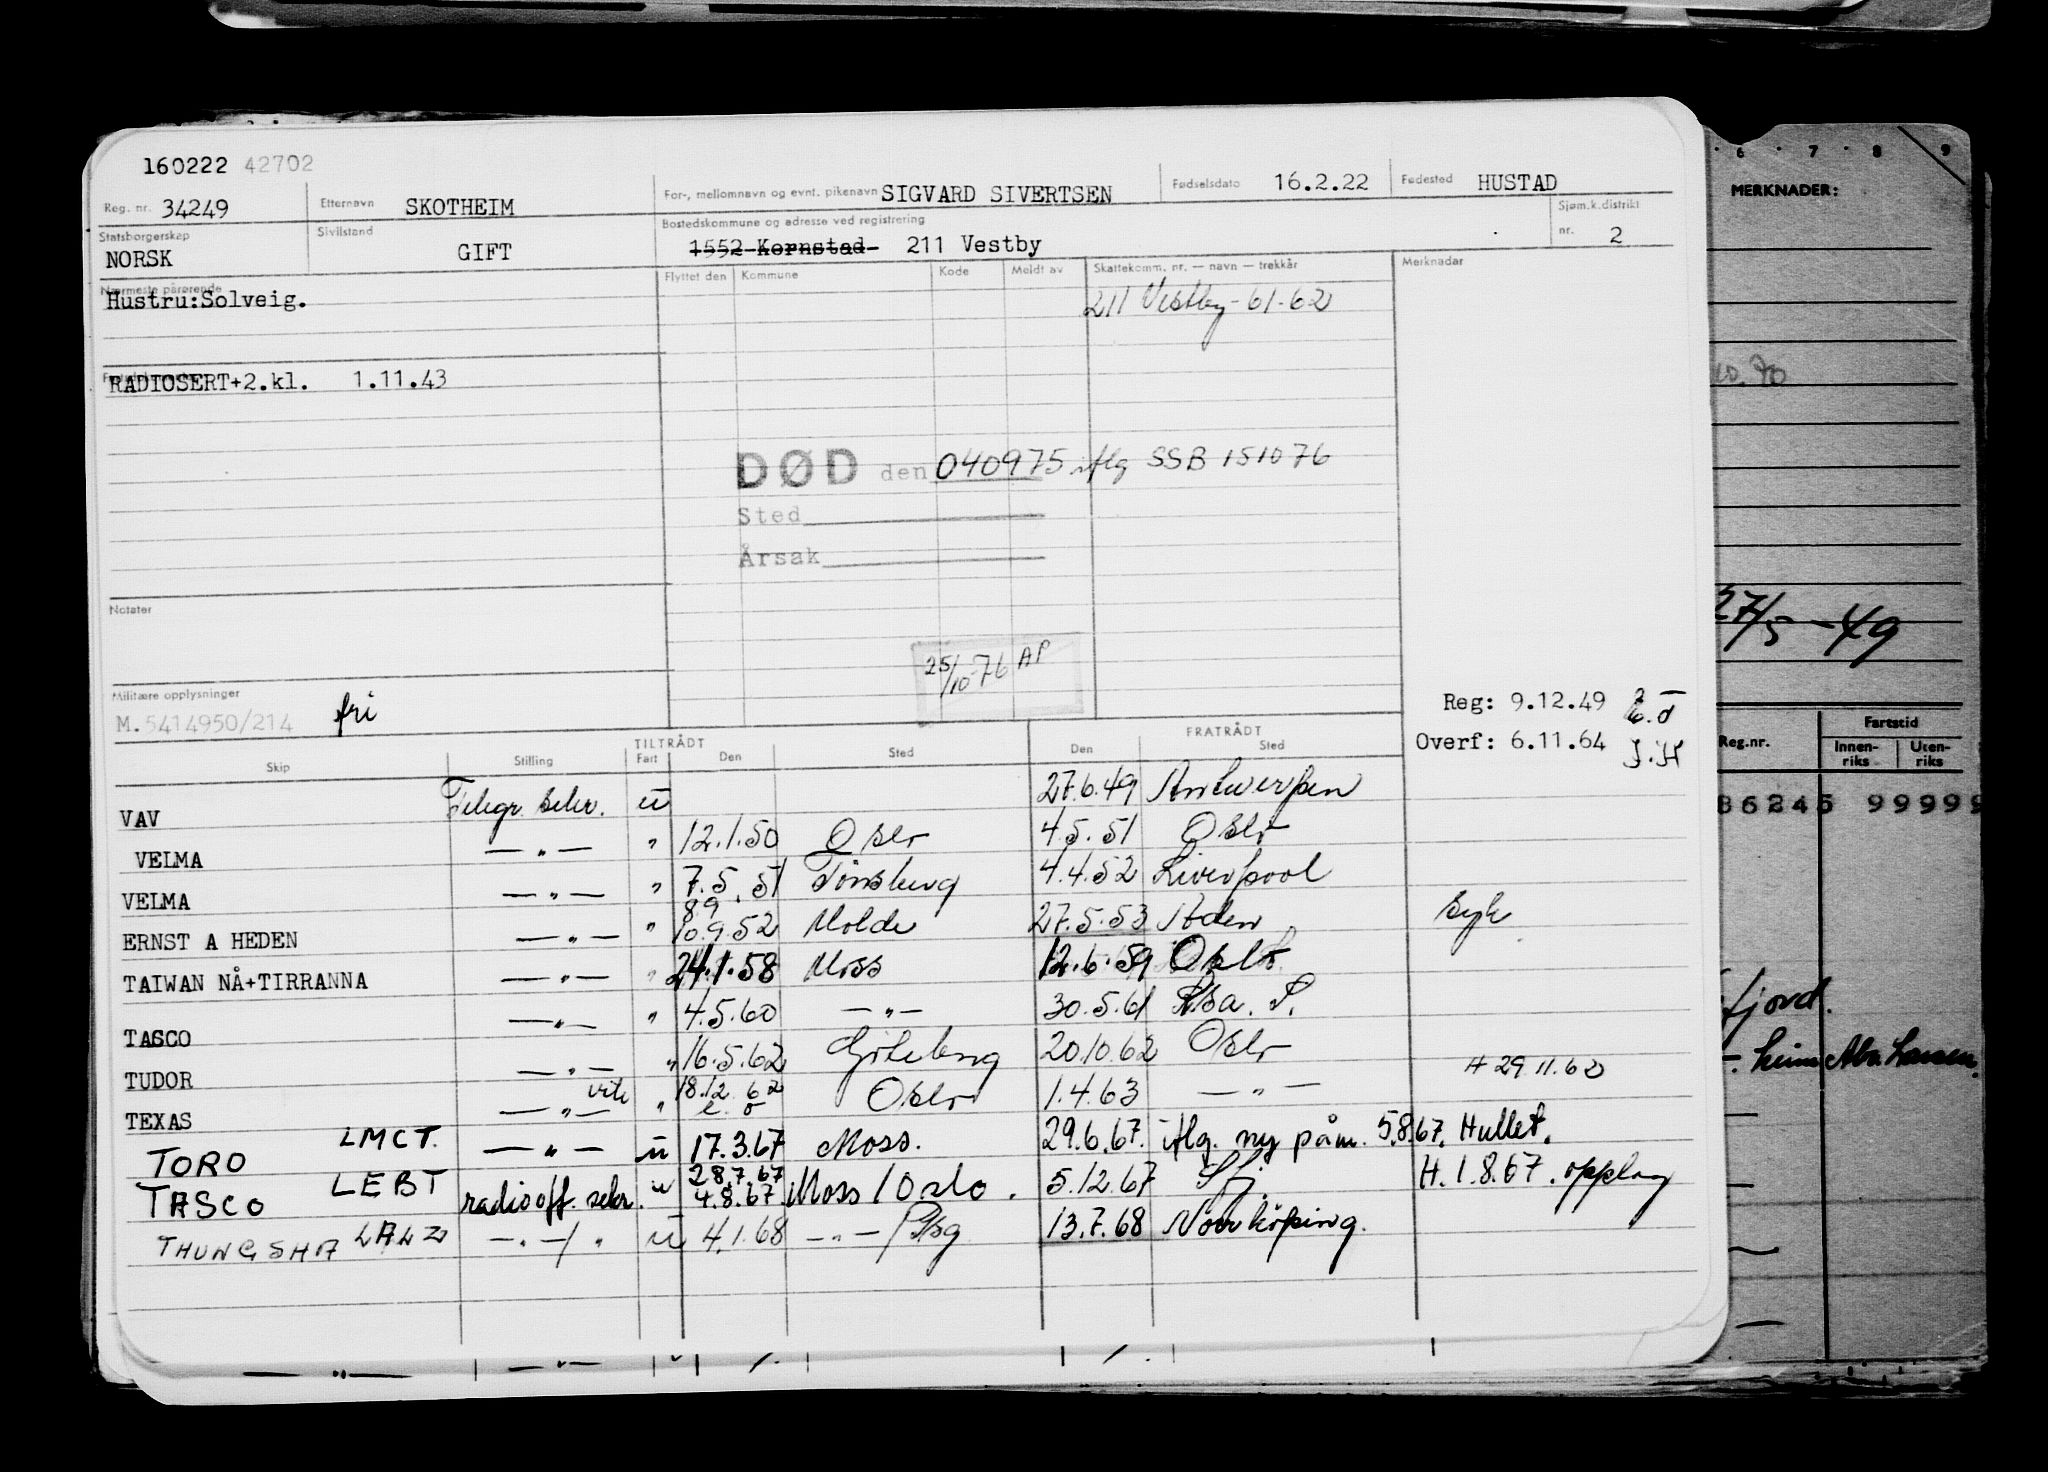 160222 42702
Reg. nr. 34249 Etternavn SKOTHEIM For-, mellomnavn og evnt. pikenavn SIGVARD SIVERTSEN Fødselsdato 16.2.22 Fødested HUSTAD
Statsborgerskap NORSK Sivilstand GIFT Bostedskommune og adresse ved registrering 1552 Kornstad 211 Vestby Sjøm.k.distrikt nr. 2
Nærmeste pårørende Flyttet den Kommune Kode Meldt av Skattekomm. nr. — navn — trekkår Merknader
Hustru:Solveig. 211 Vestby-61-62
RADIOSERT+2.kl. 1.11.43
DØD den 040975 iflg SSB 151076
Sted
Årsak
Notater
25/10-76 AP
Militære opplysninger
M.5414950/214 fri
Reg: 9.12.49
Overf: 6.11.64 J.H
TILTRÅDT FRATRÅDT
Skip Stilling Fart Den Sted Den Sted
VAV Telegr. sekr. u 27.6.49 Antwerpen
VELMA — " — " 12.1.50 Oslo 4.5.51 Oslo
VELMA — " — " 7.5.51 Tønsberg 4.4.52 Liverpool
ERNST A HEDEN — " — " 8.9 10.9.52 Molde 27.5.53 Aden syk
TAIWAN NÅ+TIRRANNA — " — " 24.1.58 Moss 12.6.59 Oslo
TASCO — " — " 4.5.60 — " — 30.5.61
TUDOR — " — " 16.5.62 Göteborg 20.10.62 Oslo H 29.11.62
TEXAS — " — vik " 18.12.62 Oslo 1.4.63 — " —
TORO LMCT. — " — u 17.3.67 Moss. 29.6.67. iflg. ny påm. 5.8.67. Hullet.
TASCO LEBT radiooff. sekr. u 28.7.67 4.8.67. Moss / Oslo. 5.12.67 Sfj. H. 1.8.67. opplag
THUNGSHA LALZ — " — / " u 4.1.68 — " — / Pbsg 13.7.68 Norrköping.
6 7 8 9
MERKNADER:
10.70
27/5 -49
Reg.nr. Fartstid
Innen-riks Uten-riks
86245 99999
fjord.